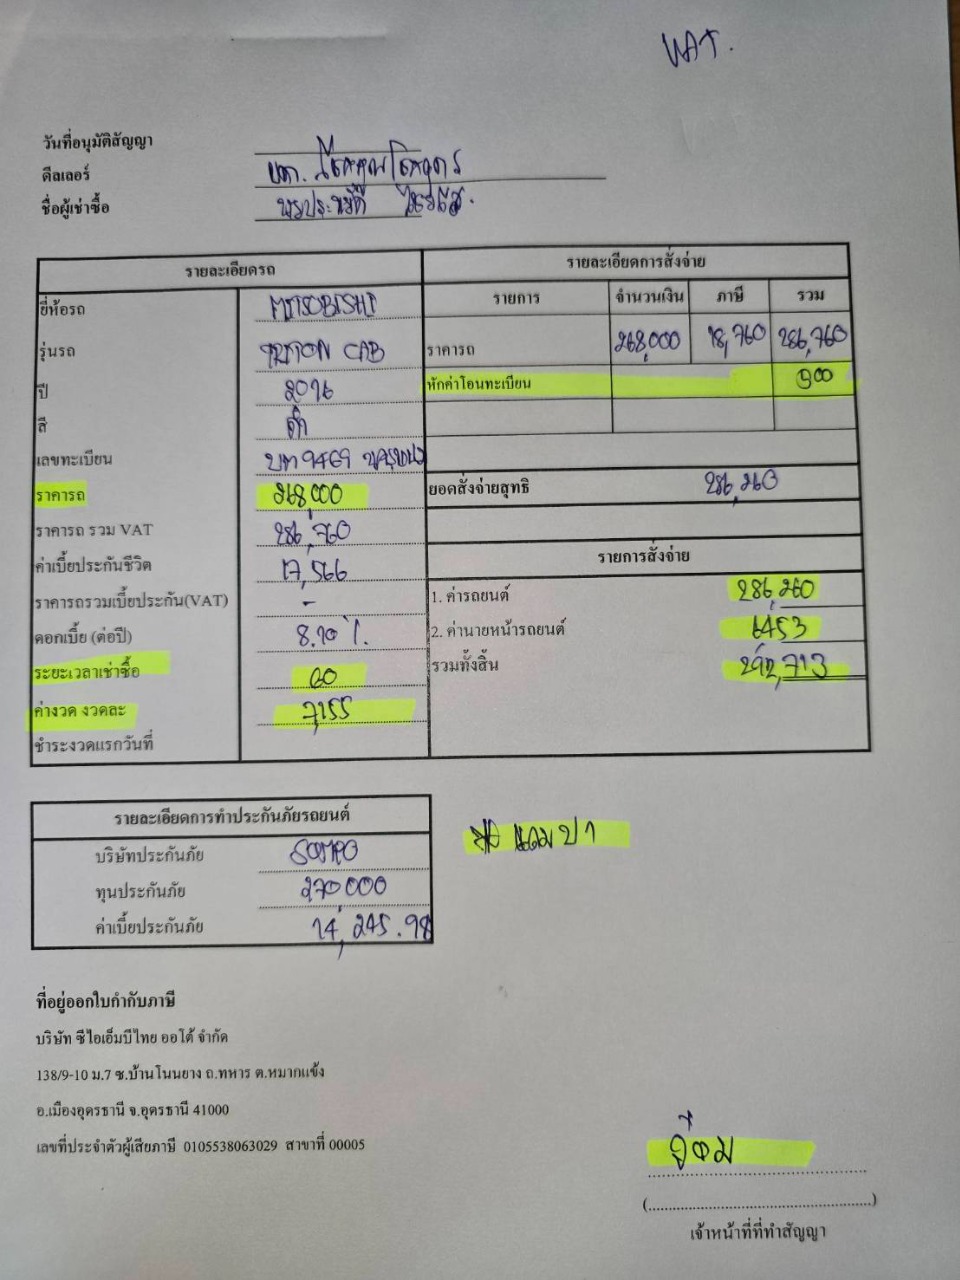 VAT.
วันที่อนุมัติสัญญา
ดีลเลอร์ บจก.
ชื่อผู้เช่าซื้อ
รายละเอียดรถ
ยี่ห้อรถ MITSUBISHI
รุ่นรถ TRITON CAB
ปี 2016
สี ดำ
เลขทะเบียน บท 9469
ราคารถ 268,000
ราคารถ รวม VAT 286,760
ค่าเบี้ยประกันชีวิต 17,566
ราคารถรวมเบี้ยประกัน(VAT) -
ดอกเบี้ย (ต่อปี)
ระยะเวลาเช่าซื้อ 60
ค่างวด งวดละ 7,155
ชำระงวดแรกวันที่
รายละเอียดการสั่งจ่าย
รายการ จำนวนเงิน ภาษี รวม
ราคารถ 268,000 18,760 286,760
หักค่าโอนทะเบียน
ยอดสั่งจ่ายสุทธิ 286,260
รายการสั่งจ่าย
1. ค่ารถยนต์ 286,260
2. ค่านายหน้ารถยนต์ 6453
รวมทั้งสิ้น 292,713
รายละเอียดการทำประกันภัยรถยนต์
บริษัทประกันภัย SOMPO
ทุนประกันภัย 270000
ค่าเบี้ยประกันภัย 14,245.98
แถม ป1
ที่อยู่ออกใบกำกับภาษี
บริษัท ซีไอเอ็มบีไทย ออโต้ จำกัด
138/9-10 ม.7 ซ.บ้านโนนยาง ถ.ทหาร ต.หมากแข้ง
อ.เมืองอุดรธานี จ.อุดรธานี 41000
เลขที่ประจำตัวผู้เสียภาษี 0105538063029 สาขาที่ 00005
(........................................................)
เจ้าหน้าที่ที่ทำสัญญา